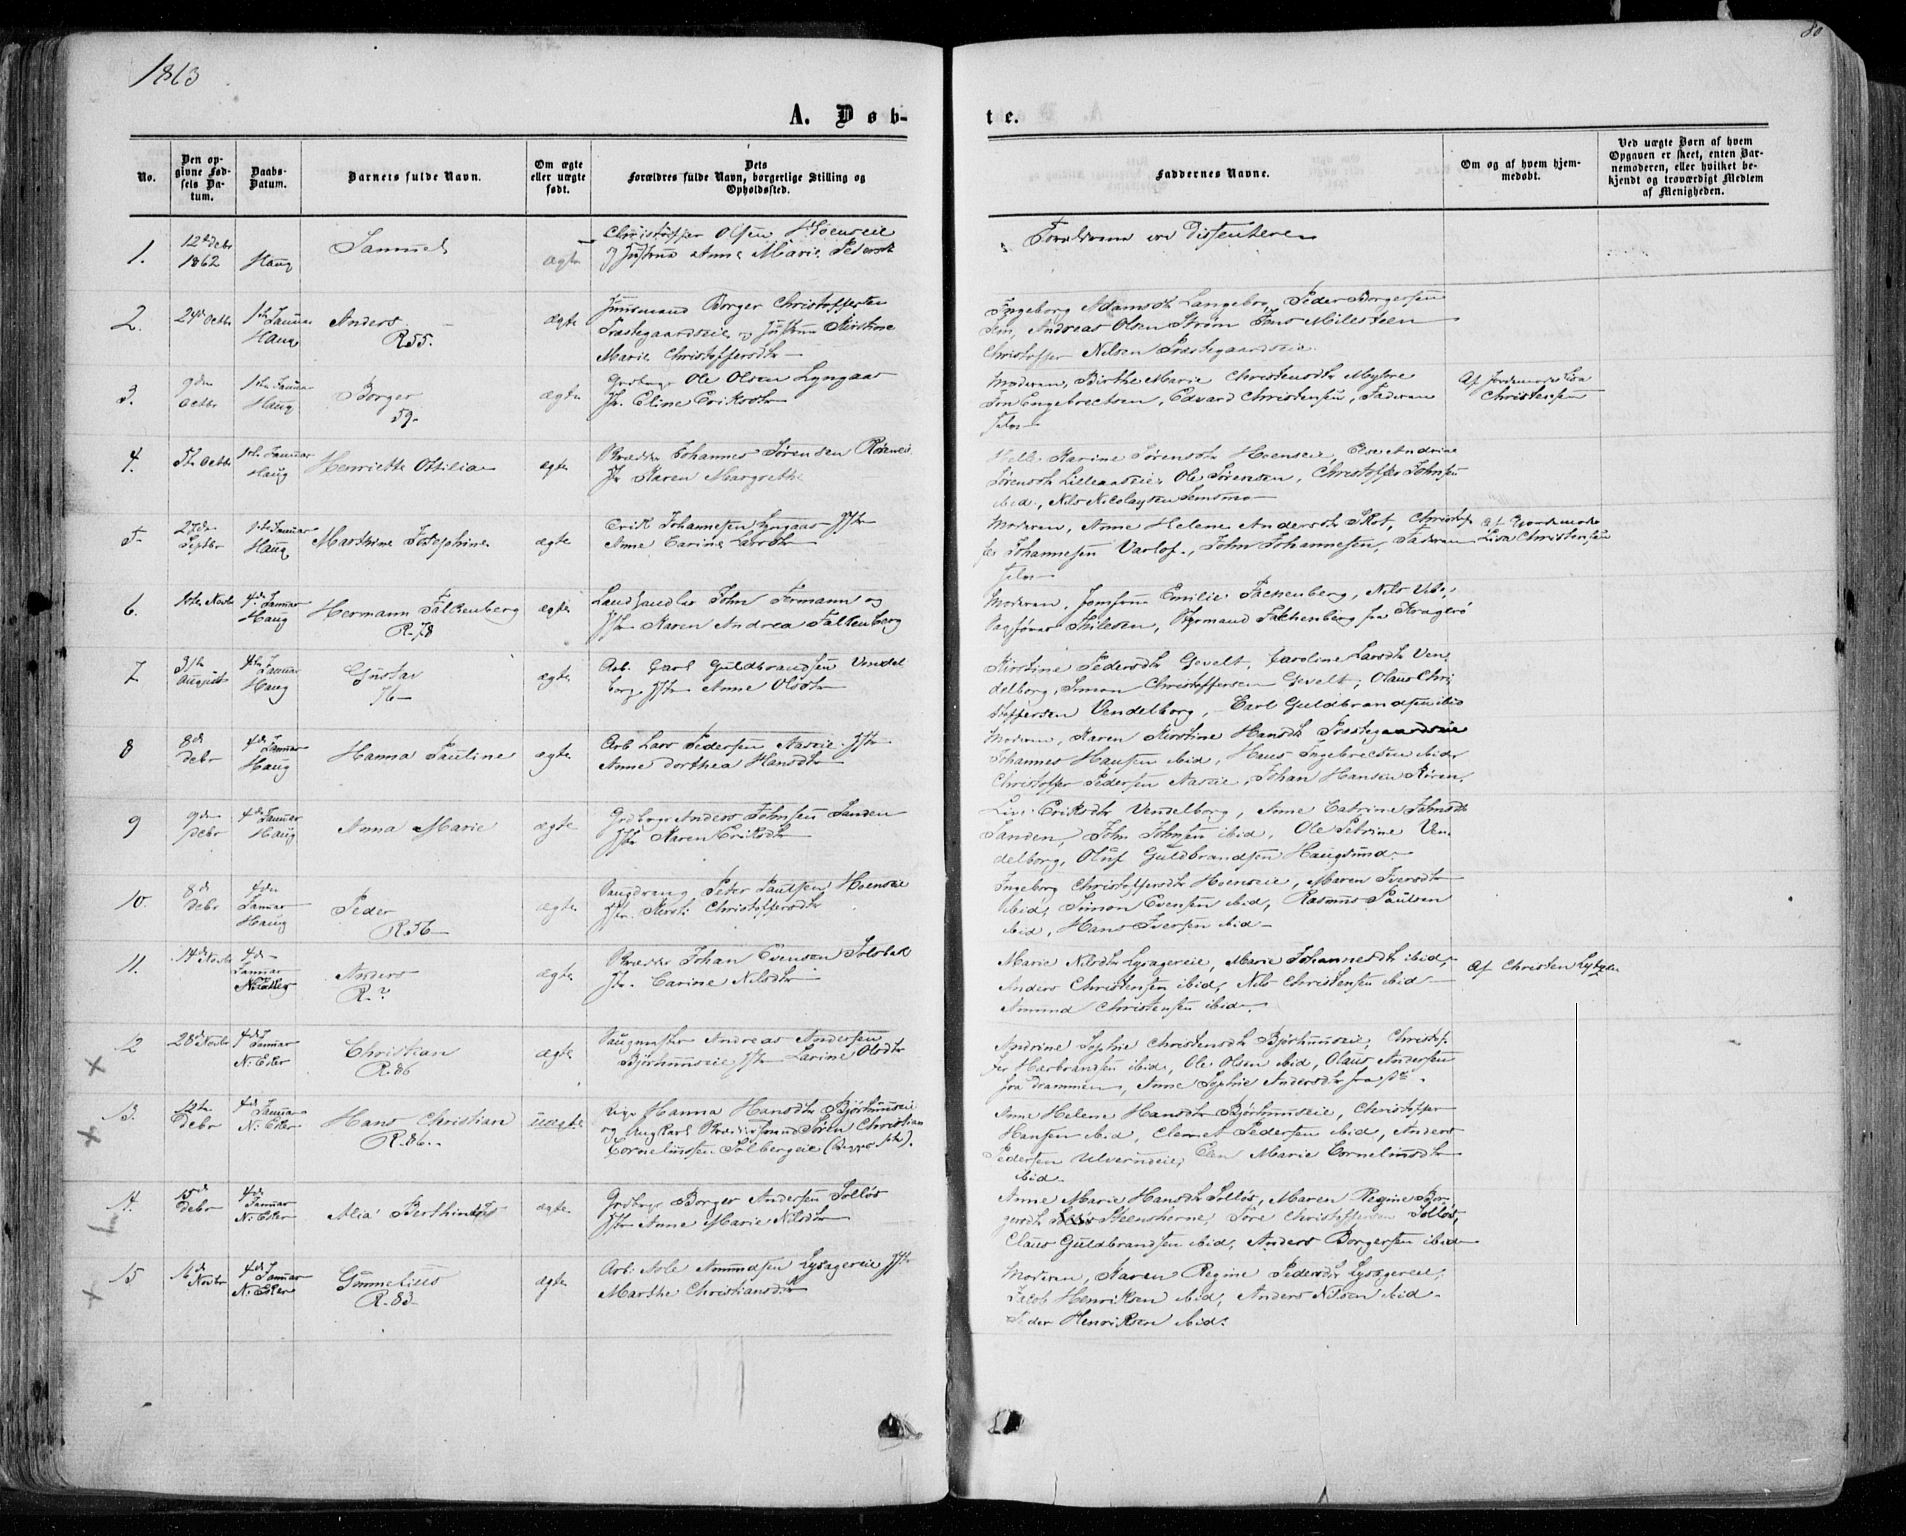 1863
80
A. Døb-
te.
No.
Den op-
givne Fød-
sels Da-
tum.
Daabs-
Datum.
Barnets fulde Navn.
Om ægte
eller uægte
født.
Dets
Forældres fulde Navn, borgerlige Stilling og
Opholdssted.
Faddernes Navne.
Om og af hvem hjem-
medøbt.
Ved uægte Børn af hvem
Opgaven er skeet, enten Bar-
nemoderen, eller hvilket be-
kjendt og troværdigt Medlem
af Menigheden.
1. 12te Debr 1862 Haug Samuel ægte
Christoffer Olsen Hoenseie
og Hustru Anne Marie Pedersdt
Forældrene ere Dissentere
2. 24de Octbr 1ste Januar Haug Anders R. 55. ægte
Huusmand Borger Christoffersen
Præstegaardseie og Hustru Kirstine
Marie Christoffersdtr
Ingeborg Adamsdtr Langebro, Peder Borgersen
Andreas Olsen Strøm, Jens Milesteen
Christoffer Nilsen Præstegaardseie
3. 9de Octbr 1ste Januar Haug Borger 59. ægte
Grdbrgr Ole Olsen Lyngaas
Hr. Eline Eriksdtr
Moderen, Birthe Marie Christensdtr Myhre
Engebrectsen, Edvard Christensen, Faderen
selv
Af Jordemoder Lisa
Christensen
4. 5te Octbr 1ste Januar Haug Henriette Ottilia ægte
Johannes Sørensen
Hr Karen Margrethe
Helle Karine Sørensdtr Hoenseie, Else Andrine
Sørensdtr Lilleaaseie, Ole Sørensen, Christoffer Johnsen
ibid, Nils Nicolaysen Semsmo
5. 27de Septbr 1ste Januar Haug Marthine Josephine ægte
Erik Johannesen Lyngaas Hstr
Anne Carine Larsdtr
Moderen, Anne Helene Andersdtr Skot, Christof-
fer Johannesen Varlof, John Johannesen, Faderen
selv
Af Gjordemoder
Lisa Christensen
6. 1ste Novbr 4de Januar Haug Hermann Falkenberg R. 58 ægte
Landhandler John Fermann og
Hstr Karen Andrea Falkenberg
Moderen, Jomfru Emilie Falkenberg, Nils Ube,
Sagfører Thilesen, Hermand Falkenberg fra Kragerø
7 31te August 4de Januar Haug Gustav 76 ægte
Arb. Carl Guldbrandsen Vendel-
borg, Hstr Anne Olsdtr
Kirstine Pedersdtr Gevelt, Caroline Larsdtr Ven-
delborg, Simon Christoffersen Gevelt, Olaus Chri-
stoffersen Vendelborg, Carl Guldbrandsen ibid
8 8de Debr 4de Januar Haug Hanna Pauline ægte
Arb Lars Pedersen Aaseie Hstr
Anne Dorthea Hansdtr
Moderen, Karen Kirstine Hansdtr Præstegaardseie
Johannes Hansen ibid, Hans Ingebrectsen ibid
Christoffer Pedersen Aaseie, Johan Hansen Røren
9 9de Debr 4de Januar Haug Anna Marie ægte
Grdbrgr Anders Johnsen Sanden
Hstr Karen Eriksdtr
Live Eriksdtr Vendelborg, Anne Catrine Johnsdtr
Sanden, John Johnsen ibid, Ole Petrine Ven-
delborg, Oluf Guldbrandsen Haugsund
10. 8de Debr 4de Januar Haug Peder R. 56 ægte
Peder Paulsen Hoenseie
Hstr. Kirsti Christoffersdtr
Ingeborg Christoffersdtr Hoenseie, Maren Iversdtr
ibid, Simon Evensen ibid, Rasmus Paulsen
ibid, Hans Iversen ibid
11. 14de Novbr 4de Januar N. Eker Anders R. ? ægte
Johan Evensen
Hr. Carine Nilsdtr
Marie Nilsdtr Lysagereie, Marie Johannesdtr ibid,
Anders Christensen ibid, Nils Christensen ibid
Amund Christensen ibid.
Af Christen
12 28de Novbr 4de Januar N. Eker Christian R. 86 ægte
x
Saugmester Andreas Andersen
Bjørhuuseie Hstr Larine Olsdtr
Andrine Sophie Christensdtr Bjørhuuseie, Christof-
fer Halbrandsen ibid, Ole Olsen ibid, Olaus Andersen
fra Drammen, Anne Sophie Andersdtr fra do.
13. 12te Debr 4de Januar N. Eker Hans Christian R. 86. uægte
x
Pige Hanna Hansdtr Bjørhuuseie
og Ungkarl Søren Christian
Corneliussen Solbergeie (Begges 1ste).
Anne Helene Hansdtr Bjørhuuseie, Christoffer
Hansen ibid, Clemet Pedersen ibid, Anders
Pedersen Ulverudeie, Elen Marie Corneliusdtr
ibid
14. 15de Debr 4de Januar N. Eker Berthinius ægte
Grdbrgr Borger Andersen Solløs
Hstr Anne Marie Nilsdtr
Anne Marie Hansdtr Solløs, Maren Regine Bor-
gersdtr Steensherne, Tore Christoffersen Solløs,
Claus Guldbrandsen ibid, Anders Borgersen ibid
15 11de Novbr 4de Januar N. Eker Gunnelius R. 83 ægte
x
Arb. Amundsen Lysagereie Hstr
Marthe Christiansdtr
Moderen, Karen Regine Pedersdtr Lysagereie,
Jacob Henriksen ibid, Anders Nilsen ibid
Peder Henriksen ibid.